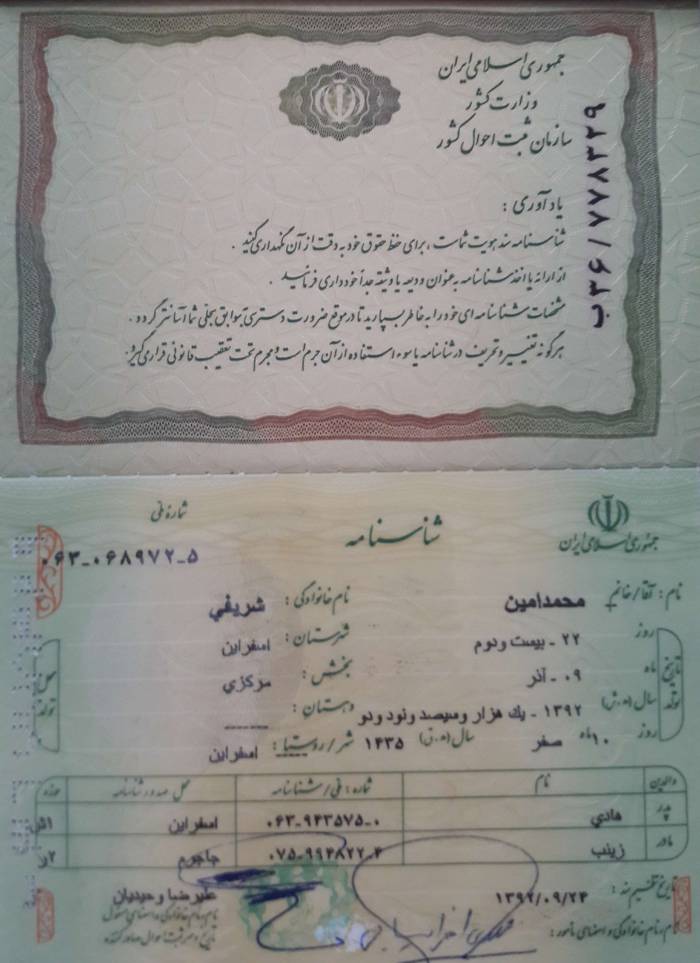 جمهوری اسلامی ایران
وزارت کشور
سازمان ثبت احوال کشور
ب۳۶/۷۷۸۳۲۹
یادآوری :
شناسنامه سند هویت شماست ، برای حفظ حقوق خود به دقت از آن نگهداری کنید .
از ارائه یا اخذ شناسنامه به عنوان ودیعه یا وثیقه جداً خودداری فرمائید .
مشخصات شناسنامه ای خود را به خاطر بسپارید تا در موقع ضرورت دسترسی به سوابق سجلی شما آسانتر گردد .
هرگونه تغییر و تحریف در شناسنامه یا سوء استفاده از آن جرم است و مجرم تحت تعقیب قانونی قرار می گیرد .
جمهوری اسلامی ایران
شناسنامه
شماره ملی
۰۶۳-۰۶۸۹۷۲-۵
نام : آقا/خانم محمدامین نام خانوادگی : شریفي
تاریخ تولد روز ۲۲ - بیست ودوم شهرستان : اسفراین محل تولد
ماه ۰۹ - آذر بخش : مرکزي
سال (ه.ش) ۱۳۹۲ - یك هزار وسیصد ونود ودو دهستان : ------
روز ۱۰ ماه صفر سال (ه.ق) ۱۴۳۵ شهر/روستا : اسفراین
والدین نام شماره : ملی/شناسنامه محل صدور شناسنامه حوزه
پدر هادي ۰۶۳-۹۴۳۵۷۵-۰ اسفراین
مادر زینب ۰۷۵-۹۹۴۸۲۲-۴ جاجرم
تاریخ تنظیم سند : ۱۳۹۲/۰۹/۲۴ علیرضا وحیدیان
نام، نام خانوادگی و امضای مأمور : نام، نام خانوادگی و امضای مسئول
تاریخ و مهر ثبت احوال صادر کننده